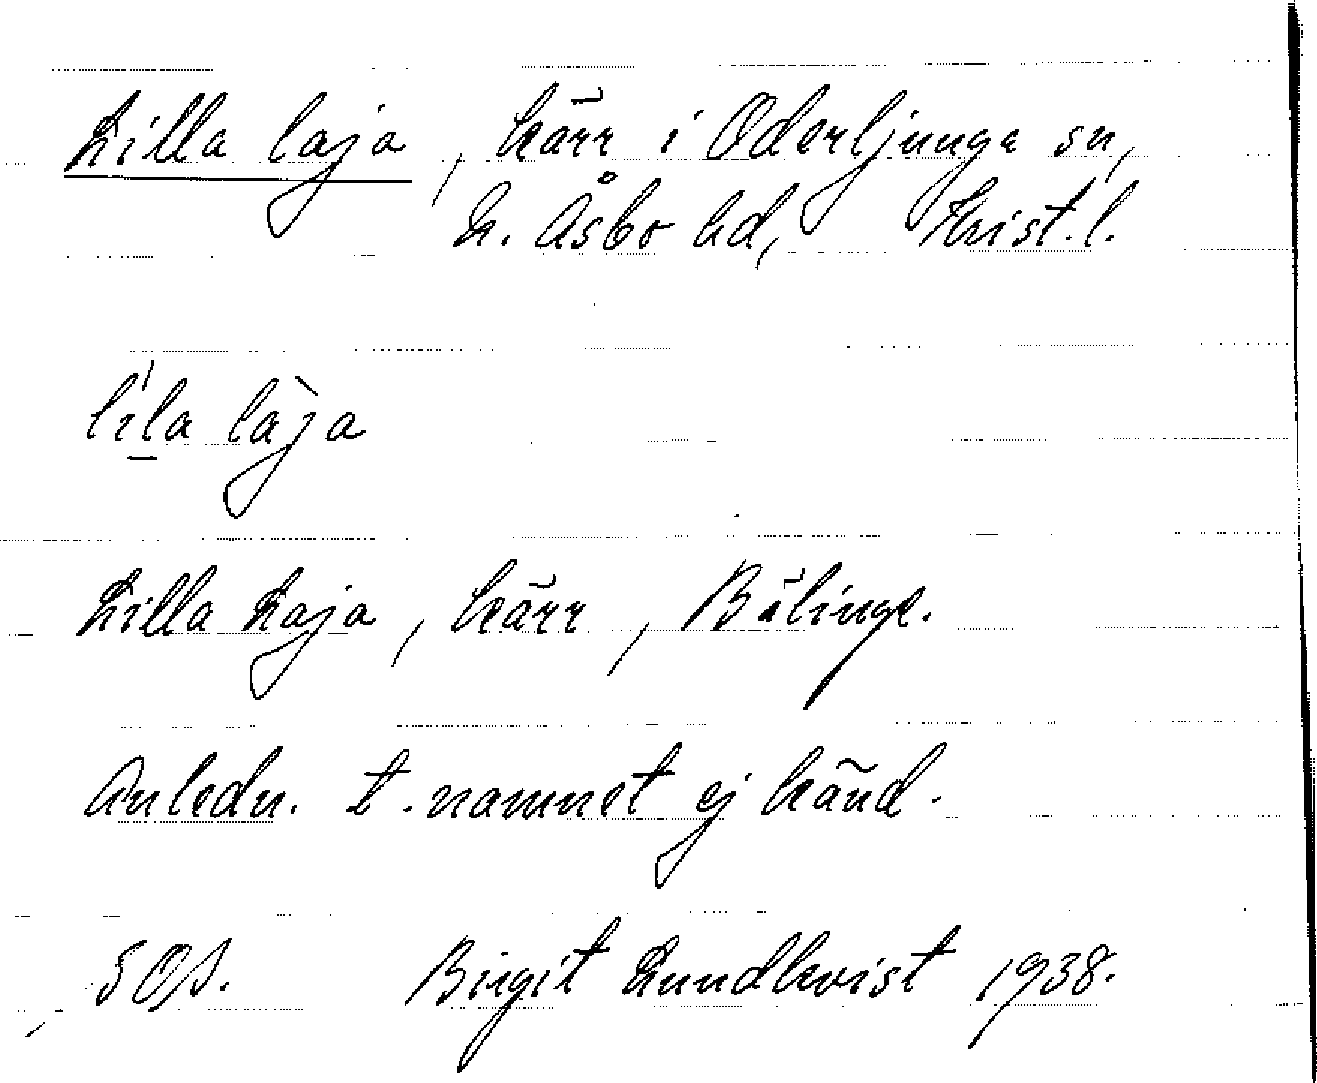 Lilla laja, kärr i Oderljunga sn,
N. Åsbo hd, Krist. l.
lı́la làja
Lilla Laja, kärr, Bälinge.
Anledn. t. namnet ej känd.
SOA. Birgit Lundkvist 1938.